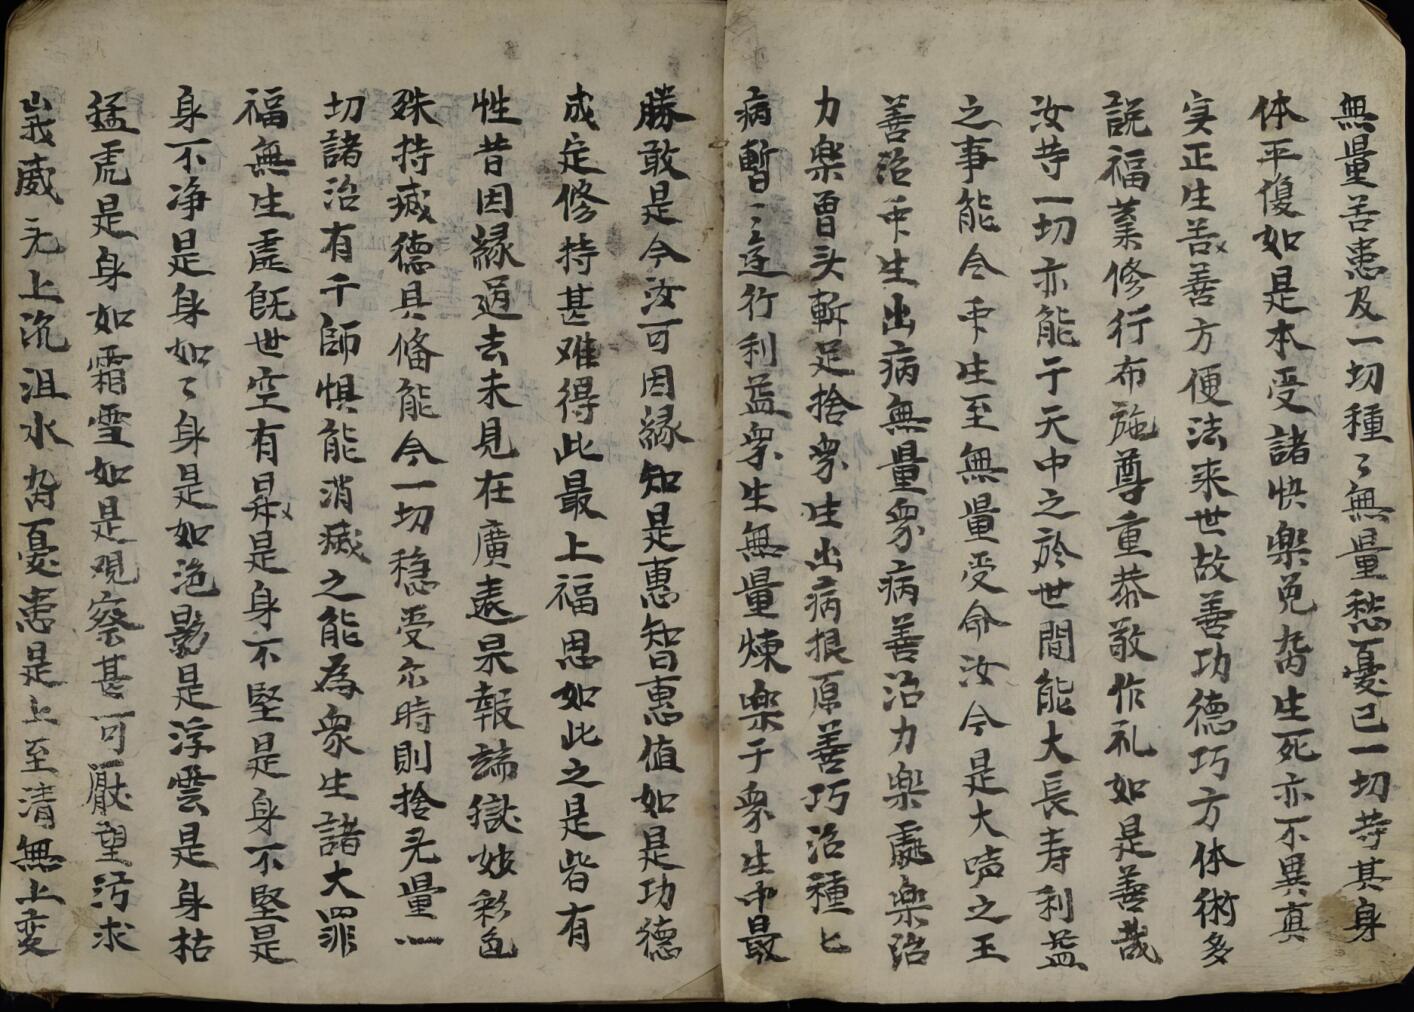 無量苦患及一切種〻無量愁憂已一切䒭其身
体平復如是本受諸快樂免脔生死亦不異真
実正生善善方便法来世故善功德巧方体術多
說福業修行布施尊重恭敬作礼如是善哉
汝䒭一切亦能于天中之於世間能大長寿利益
之事能令中生至無量受命汝今是大声之王
善治中生出病無量衆病善治力楽處樂治
力楽曽头斬足捨衆生出病根原善巧治種〻
病暫〻逹行利益衆生無量煉楽于衆生中最
勝敢是今汝可因縁知是惠知智惠值如是功德
成定修持甚难得此最上福恩如此之是皆有
性昔因縁過去未見在廣遠杲報諯嶽妓彩色
殊持威德具偹能令一切穏受亦時則捨无量一
切諸治有千師惧能消滅之能為衆生諸大罪
福無生虗旣世空有昇是身不堅是身不堅是
身不净是身如〻身是如泡影是浮雲是身枯
猛虎是身如霜雪如是观察甚可厭望污求
峩威无上沉沮水脔憂患是上至清無上变